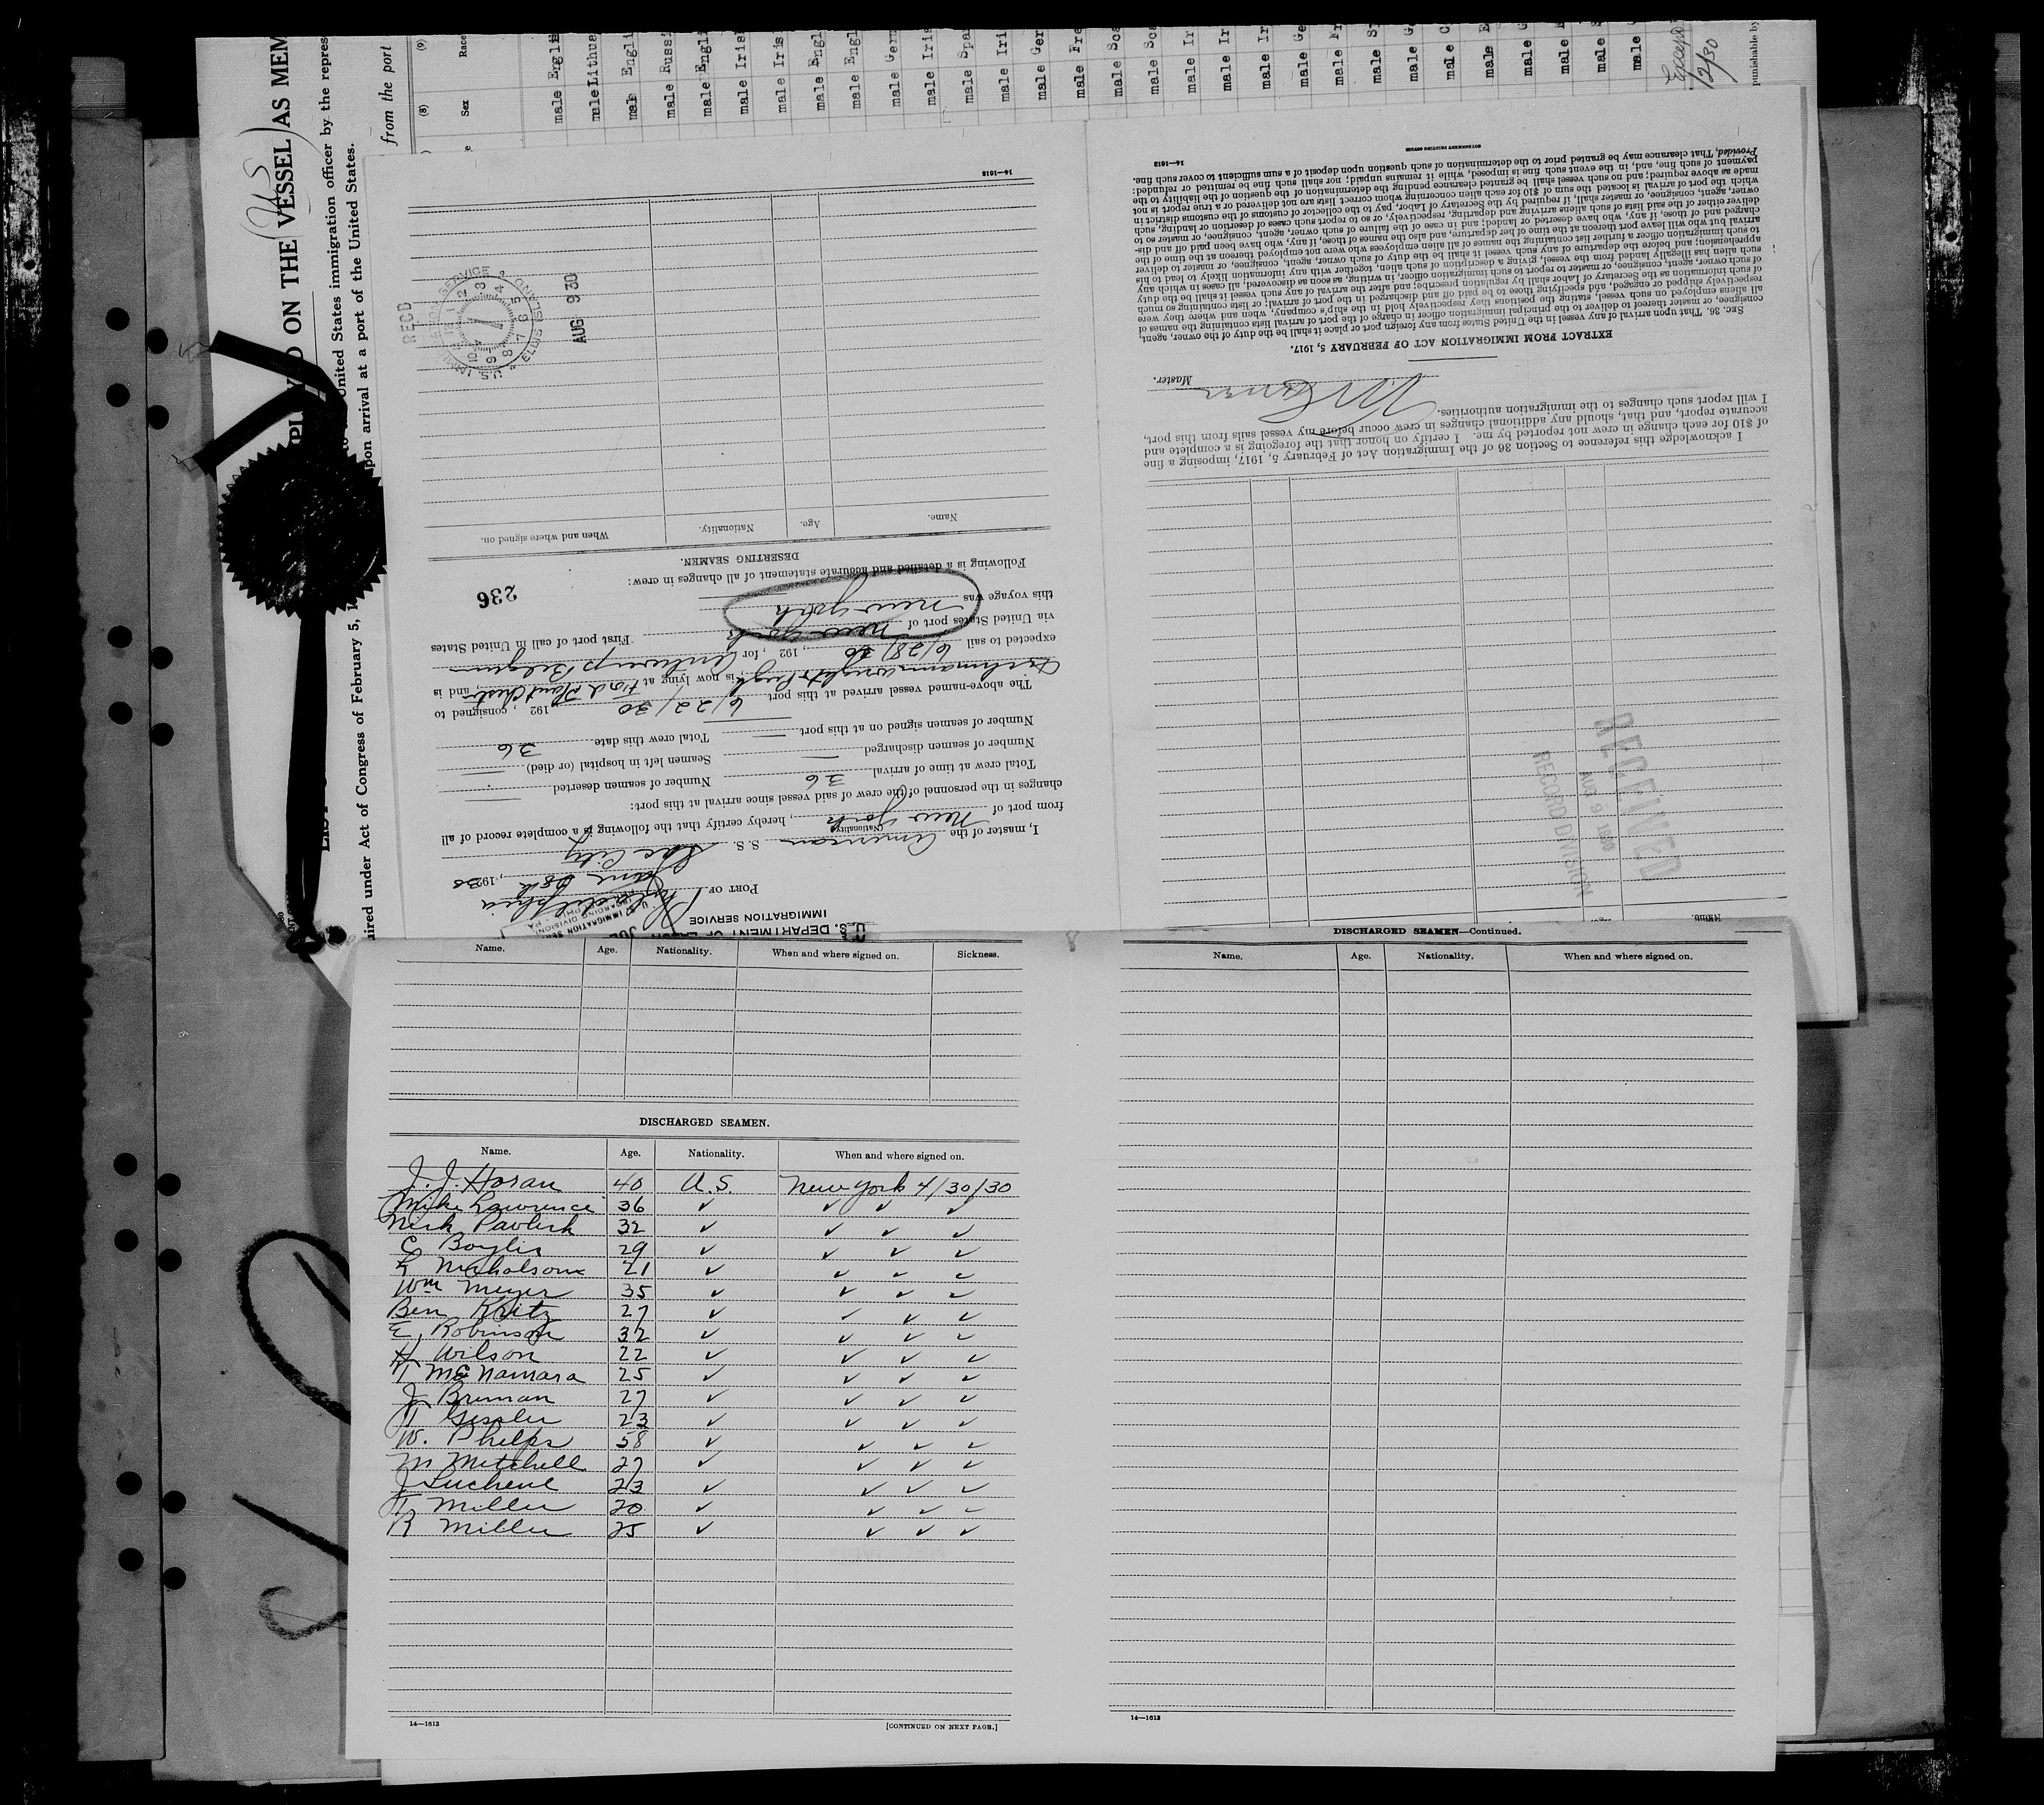 VESSEL AS MEM
United States immigration officer by the repres
upon arrival at a port of the United States.
ired under Act of Congress of February 5, 1
from the port
(8)
(9)
Sex
Race
male English
male Lithua
male Engli
male Russi
male Engli
male Iris
male Iris
male Engl
male Engl
male Germ
male Iris
male Span
male Iri
male Ger
male Fre
male Sca
male Sca
male Ir
male Ir
male Ir
male Ge
male Fr
male S
male G
male C
male E
male G
male
male S
male
12/30
punishable by
U.S. DEPARTMENT OF LABOR
IMMIGRATION SERVICE
PORT OF Philadelphia
June 28th, 1930
I, master of the American S. S. Sac City
(Nationality)
from port of New York, hereby certify that the following is a complete record of all
changes in the personnel of the crew of said vessel since arrival at this port:
Total crew at time of arrival 36 Number of seamen deserted
Number of seamen discharged Seamen left in hospital (or died)
Number of seamen signed on at this port Total crew this date 36
The above-named vessel arrived at this port 6/22/30 192 , consigned to
, is now lying at Ford Plant Chester, and is
expected to sail 6/28/30, 192 , for Antwerp Belgium
via United States port of New York First port of call in United States
this voyage was New York
Following is a detailed and accurate statement of all changes in crew:
236
DESERTING SEAMEN.
Name. Age. Nationality. When and where signed on.
RECD
AUG 9 30
U.S. IMMIGRATION SERVICE
ELLIS ISLAND
14—1613
Name.
RECEIVED
AUG 9 1930
RECORD DIVISION
I acknowledge this reference to Section 36 of the Immigration Act of February 5, 1917, imposing a fine
of $10 for each change in crew not reported by me. I certify on honor that the foregoing is a complete and
accurate report, and that, should any additional changes in crew occur before my vessel sails from this port,
I will report such changes to the immigration authorities.
Master.
EXTRACT FROM IMMIGRATION ACT OF FEBRUARY 5, 1917.
SEC. 36. That upon arrival of any vessel in the United States from any foreign port or place it shall be the duty of the owner, agent,
consignee, or master thereof to deliver to the principal immigration officer in charge of the port of arrival lists containing the names of
all aliens employed on such vessel, stating the positions they respectively hold in the ship's company, when and where they were
respectively shipped or engaged, and specifying those to be paid off and discharged in the port of arrival; or lists containing so much
of such information as the Secretary of Labor shall by regulation prescribe; and after the arrival of any such vessel it shall be the duty
of such owner, agent, consignee, or master to report to such immigration officer, in writing, as soon as discovered, all cases in which any
such alien has illegally landed from the vessel, giving a description of such alien, together with any information likely to lead to his
apprehension; and before the departure of any such vessel it shall be the duty of such owner, agent, consignee, or master to deliver
to such immigration officer a further list containing the names of all alien employees who were not employed thereon at the time of the
arrival but who will leave port thereon at the time of her departure, and also the names of those, if any, who have been paid off and dis-
charged and of those, if any, who have deserted or landed; and in case of the failure of such owner, agent, consignee, or master so to
deliver either of the said lists of such aliens arriving and departing, respectively, or so to report such cases of desertion or landing, such
owner, agent, consignee, or master shall, if required by the Secretary of Labor, pay to the collector of customs of the customs district in
which the port of arrival is located the sum of $10 for each alien concerning whom correct lists are not delivered or a true report is not
made as above required; and no such vessel shall be granted clearance pending the determination of the question of the liability to the
payment of such fine, and, in the event such fine is imposed, while it remains unpaid; nor shall such fine be remitted or refunded:
Provided, That clearance may be granted prior to the determination of such question upon deposit of a sum sufficient to cover such fine.
14—1613
GOVERNMENT PRINTING OFFICE
Name. Age. Nationality. When and where signed on. Sickness.
DISCHARGED SEAMEN.
Name. Age. Nationality. When and where signed on.
J. J. Horan 40 U.S. New York 4/30/30
Mike Lawrence 36 ✓ ✓ ✓ ✓
Nick Pavlick 32 ✓ ✓ ✓ ✓
C Boylis 29 ✓ ✓ ✓ ✓
L Nicholson 21 ✓ ✓ ✓ ✓
Wm Meyer 35 ✓ ✓ ✓ ✓
Ben Kritz 27 ✓ ✓ ✓ ✓
E. Robinson 32 ✓ ✓ ✓ ✓
H Wilson 22 ✓ ✓ ✓ ✓
T McNamara 25 ✓ ✓ ✓ ✓
J Breman 27 ✓ ✓ ✓ ✓
T Gessler 23 ✓ ✓ ✓ ✓
W. Phelps 58 ✓ ✓ ✓ ✓
M Mitchell 27 ✓ ✓ ✓ ✓
J Luchene 23 ✓ ✓ ✓ ✓
T. Miller 20 ✓ ✓ ✓ ✓
R Miller 25 ✓ ✓ ✓ ✓
14—1613
[CONTINUED ON NEXT PAGE.]
DISCHARGED SEAMEN—Continued.
Name. Age. Nationality. When and where signed on.
14—1613